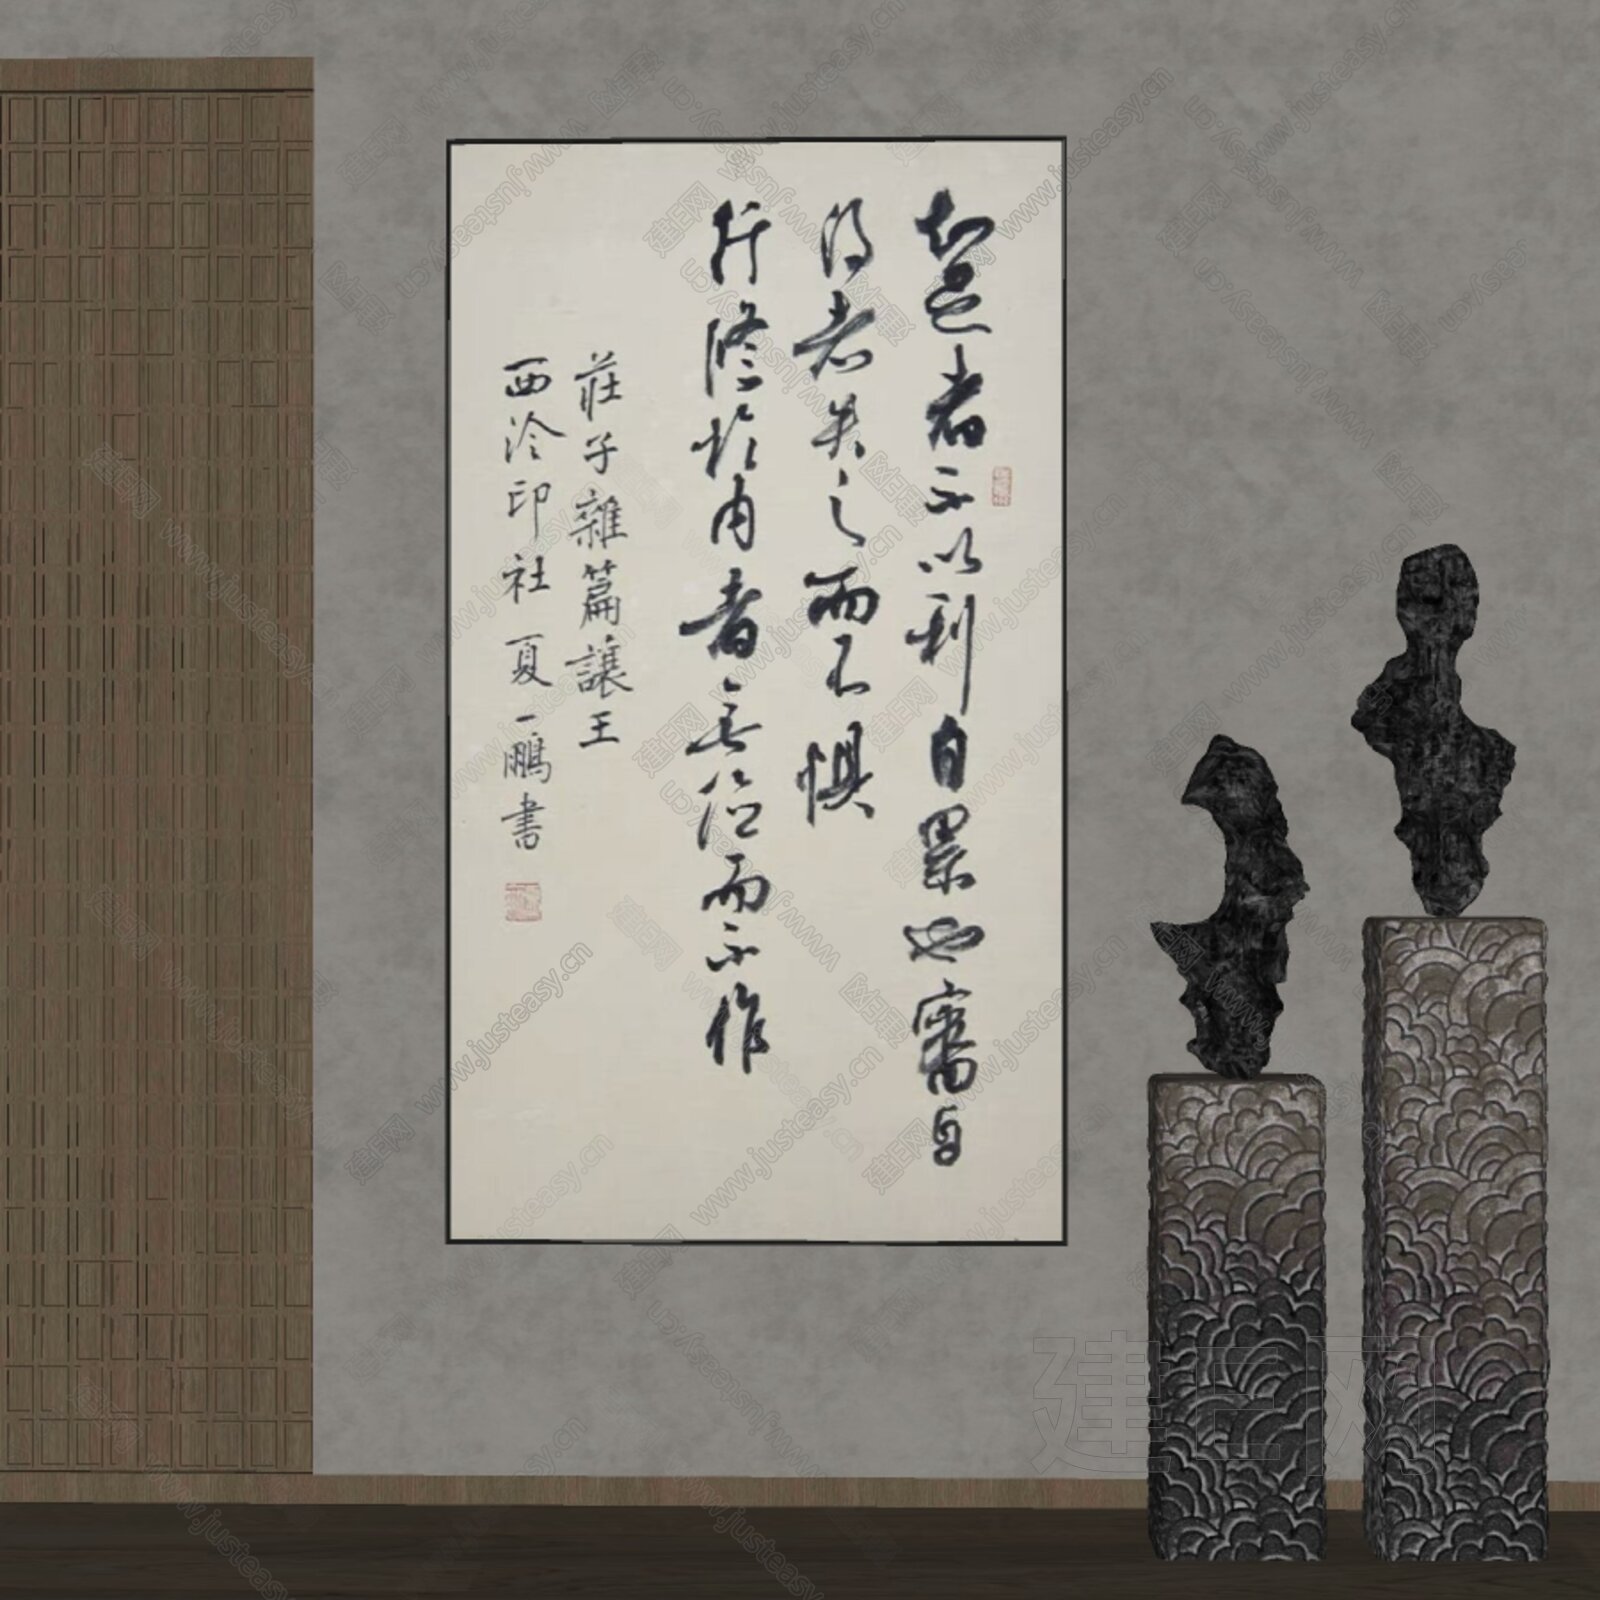 知足者不以利自累也審自
得者失之而不懼
行修於内者無位而不作
莊子雜篇讓王
西泠印社夏一鵬書
建E网
www.justeasy.cn